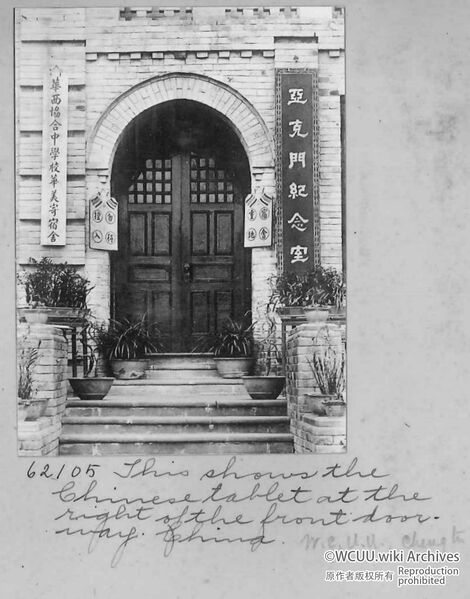 華西協合中學校華美寄宿舍
亞克門紀念室
宿舍
重地
擅入
62105 This shows the
Chinese tablet at the
right of the front door-
way. China. W.C.U.U.
©WCUU.wiki Archives
原作者版权所有 Reproduction
prohibited